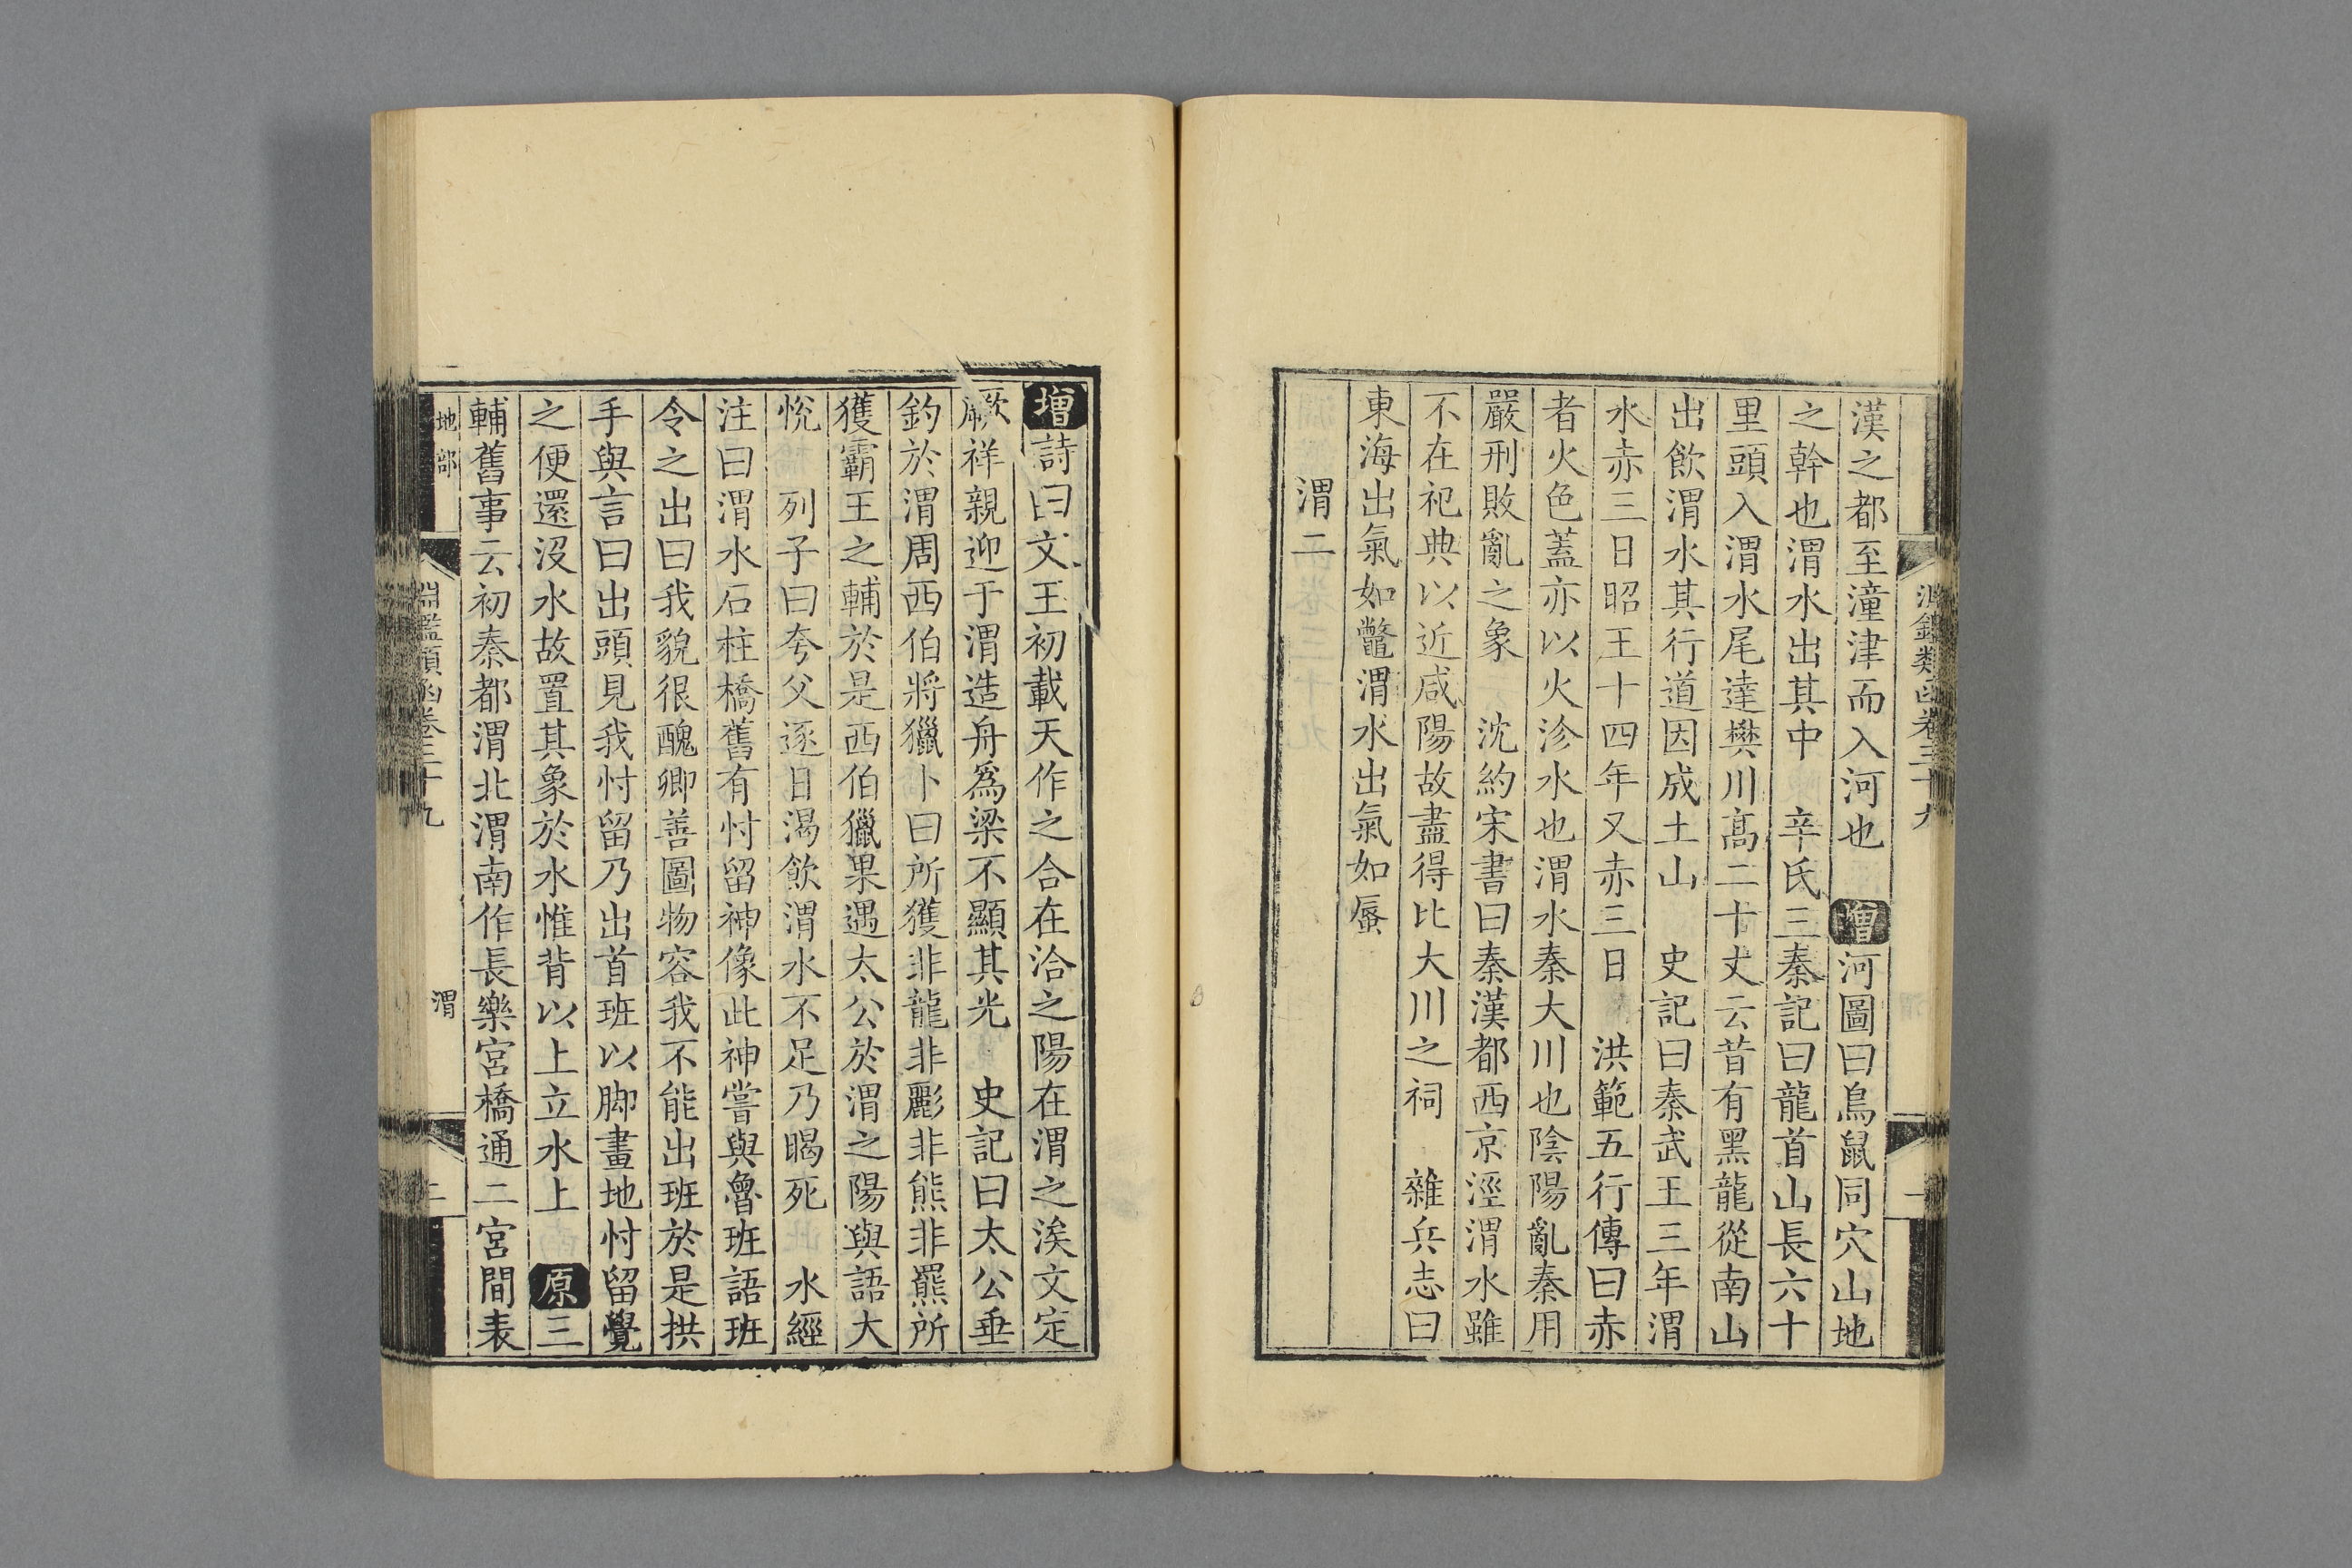 漢之都至潼津而入河也　增河圖曰鳥鼠同穴山地
之幹也渭水出其中　辛氏三秦記曰龍首山長六十
里頭入渭水尾達樊川高二十丈云昔有黑龍從南山
出飲渭水其行道因成土山　史記曰秦武王三年渭
水赤三日昭王十四年又赤三日　洪範五行傳曰赤
者火色蓋亦以火沴水也渭水秦大川也陰陽亂秦用
嚴刑敗亂之象　沈約宋書曰秦漢都西京涇渭水雖
不在祀典以近咸陽故盡得比大川之祠　雜兵志曰
東海出氣如鼈渭水出氣如蜃
渭二
增詩曰文王初載天作之合在洽之陽在渭之涘文定
厥祥親迎于渭造舟爲梁不顯其光　史記曰太公垂
釣於渭周西伯將獵卜曰所獲非龍非彲非熊非羆所
獲霸王之輔於是西伯獵果遇太公於渭之陽與語大
悅　列子曰夸父逐日渴飲渭水不足乃暍死　水經
注曰渭水石柱橋舊有忖留神像此神嘗與魯班語班
令之出曰我貌很醜卿善圖物容我不能出班於是拱
手與言曰出頭見我忖留乃出首班以脚畫地忖留覺
之便還沒水故置其象於水惟背以上立水上　原三
輔舊事云初秦都渭北渭南作長樂宮橋通二宮間表
地部
淵鑑類函卷三十九
渭
二